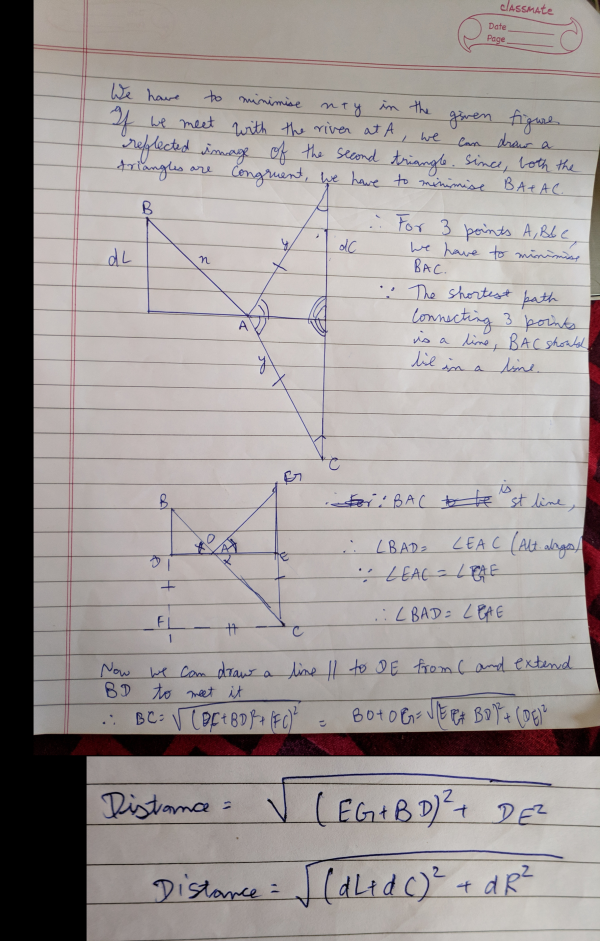 classmate
Date
Page
We have to minimise x+y in the given figure.
If we meet with the river at A, we can draw a
reflected image of the second triangle. Since, both the
triangles are congruent, we have to minimise BA+AC.
B
dL
x
y
dC
A
y
C
∴ For 3 points A, B & C,
we have to minimise
BAC.
∵ The shortest path
connecting 3 points
is a line, BAC should
lie in a line.
B
G
O
D
A
E
F
C
∵ BAC is st line,
∴ ∠BAD = ∠EAC (Alt angles)
∵ ∠EAC = ∠GAE
∴ ∠BAD = ∠GAE
Now we can draw a line || to DE from C and extend
BD to meet it
∴ BC = √(DF+BD)²+(FC)² = BO+OG = √(EG+BD)²+(DE)²
Distance = √(EG+BD)²+ DE²
Distance = √(dL+dC)² + dR²